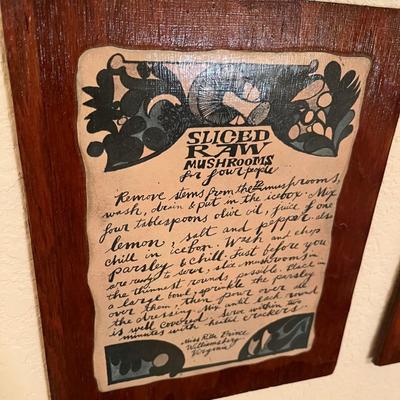 SLICED
RAW
MUSHROOMS
for four people
Remove stems from the mushrooms,
wash, drain & put in the icebox. Mix
four tablespoons olive oil, juice of one
lemon, salt and pepper. also
chill in icebox. Wash and chop
parsley & chill. Just before you
are ready to serve, slice mushrooms in
the thinnest rounds possible. Place in
a large bowl, sprinkle the parsley
over them, then pour over all
the dressing. Mix until each round
is well covered. Serve within ten
minutes with heated crackers.
Miss Rita Prince
Williamsburg
Virginia